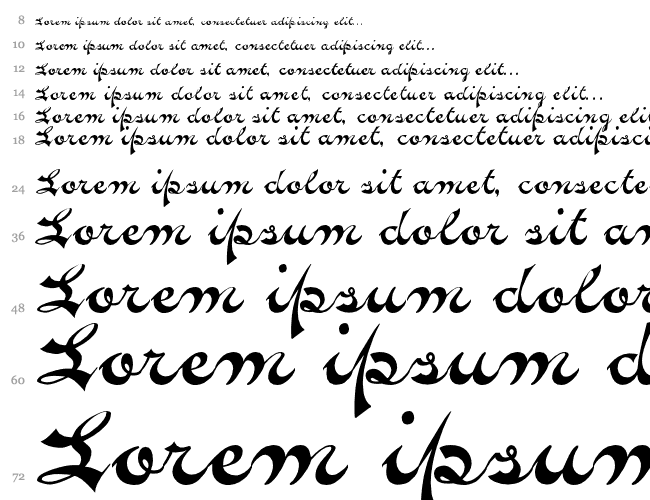 8 Lorem ipsum dolor sit amet, consectetuer adipiscing elit...
10 Lorem ipsum dolor sit amet, consectetuer adipiscing elit...
12 Lorem ipsum dolor sit amet, consectetuer adipiscing elit...
14 Lorem ipsum dolor sit amet, consectetuer adipiscing elit...
16 Lorem ipsum dolor sit amet, consectetuer adipiscing eli
18 Lorem ipsum dolor sit amet, consectetuer adipisci
24 Lorem ipsum dolor sit amet, consecte
36 Lorem ipsum dolor sit am
48 Lorem ipsum dolor
60 Lorem ipsum d
72 Lorem ipsum